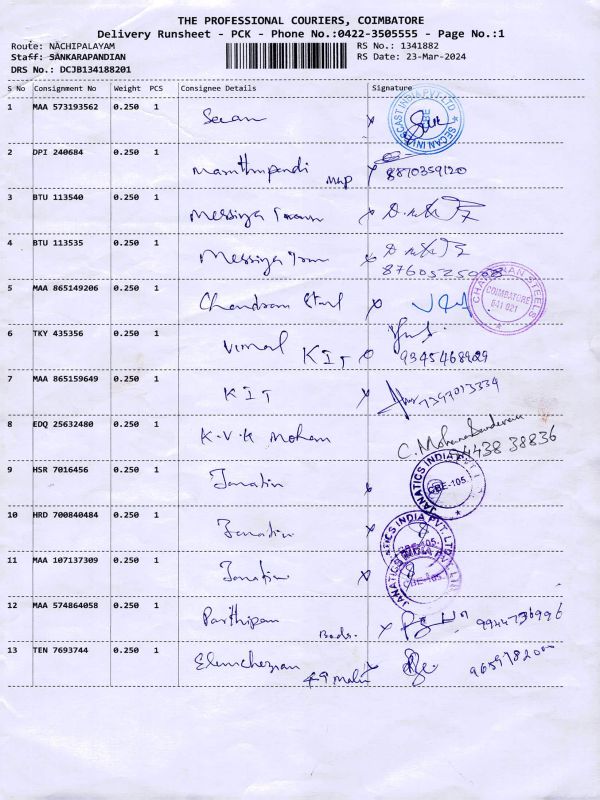 THE PROFESSIONAL COURIERS, COIMBATORE
Delivery Runsheet - PCK - Phone No.:0422-3505555 - Page No.:1
Route: NACHIPALAYAM RS No.: 1341882
Staff: SANKARAPANDIAN RS Date: 23-Mar-2024
DRS No.: DCJB134188201
S No Consignment No Weight PCS Consignee Details Signature
1 MAA 573193562 0.250 1 Secan
SECAN INVESCAST INDIA PVT LTD CBE
2 DPI 240684 0.250 1
8870359120
3 BTU 113540 0.250 1 Messiya
4 BTU 113535 0.250 1 Messiya
8760525008
5 MAA 865149206 0.250 1 Chandran Steel
CHANDRAN STEELS COIMBATORE 641 021
6 TKY 435356 0.250 1 Vimal KIT
9345468929
7 MAA 865159649 0.250 1 KIT
7397013334
8 EDQ 25632480 0.250 1 K.V.K Mohan
C. Mohana Sundaram
4438 38836
9 HSR 7016456 0.250 1 Janatin
JANATICS INDIA PVT. LTD CBE-105.
10 HRD 700840484 0.250 1 Janatin
JANATICS INDIA PVT. LTD CBE-105.
11 MAA 107137309 0.250 1 Janatin
JANATICS INDIA PVT. LTD CBE-105.
12 MAA 574864058 0.250 1 Parthipan
9944736996
13 TEN 7693744 0.250 1 Elenchezian
49